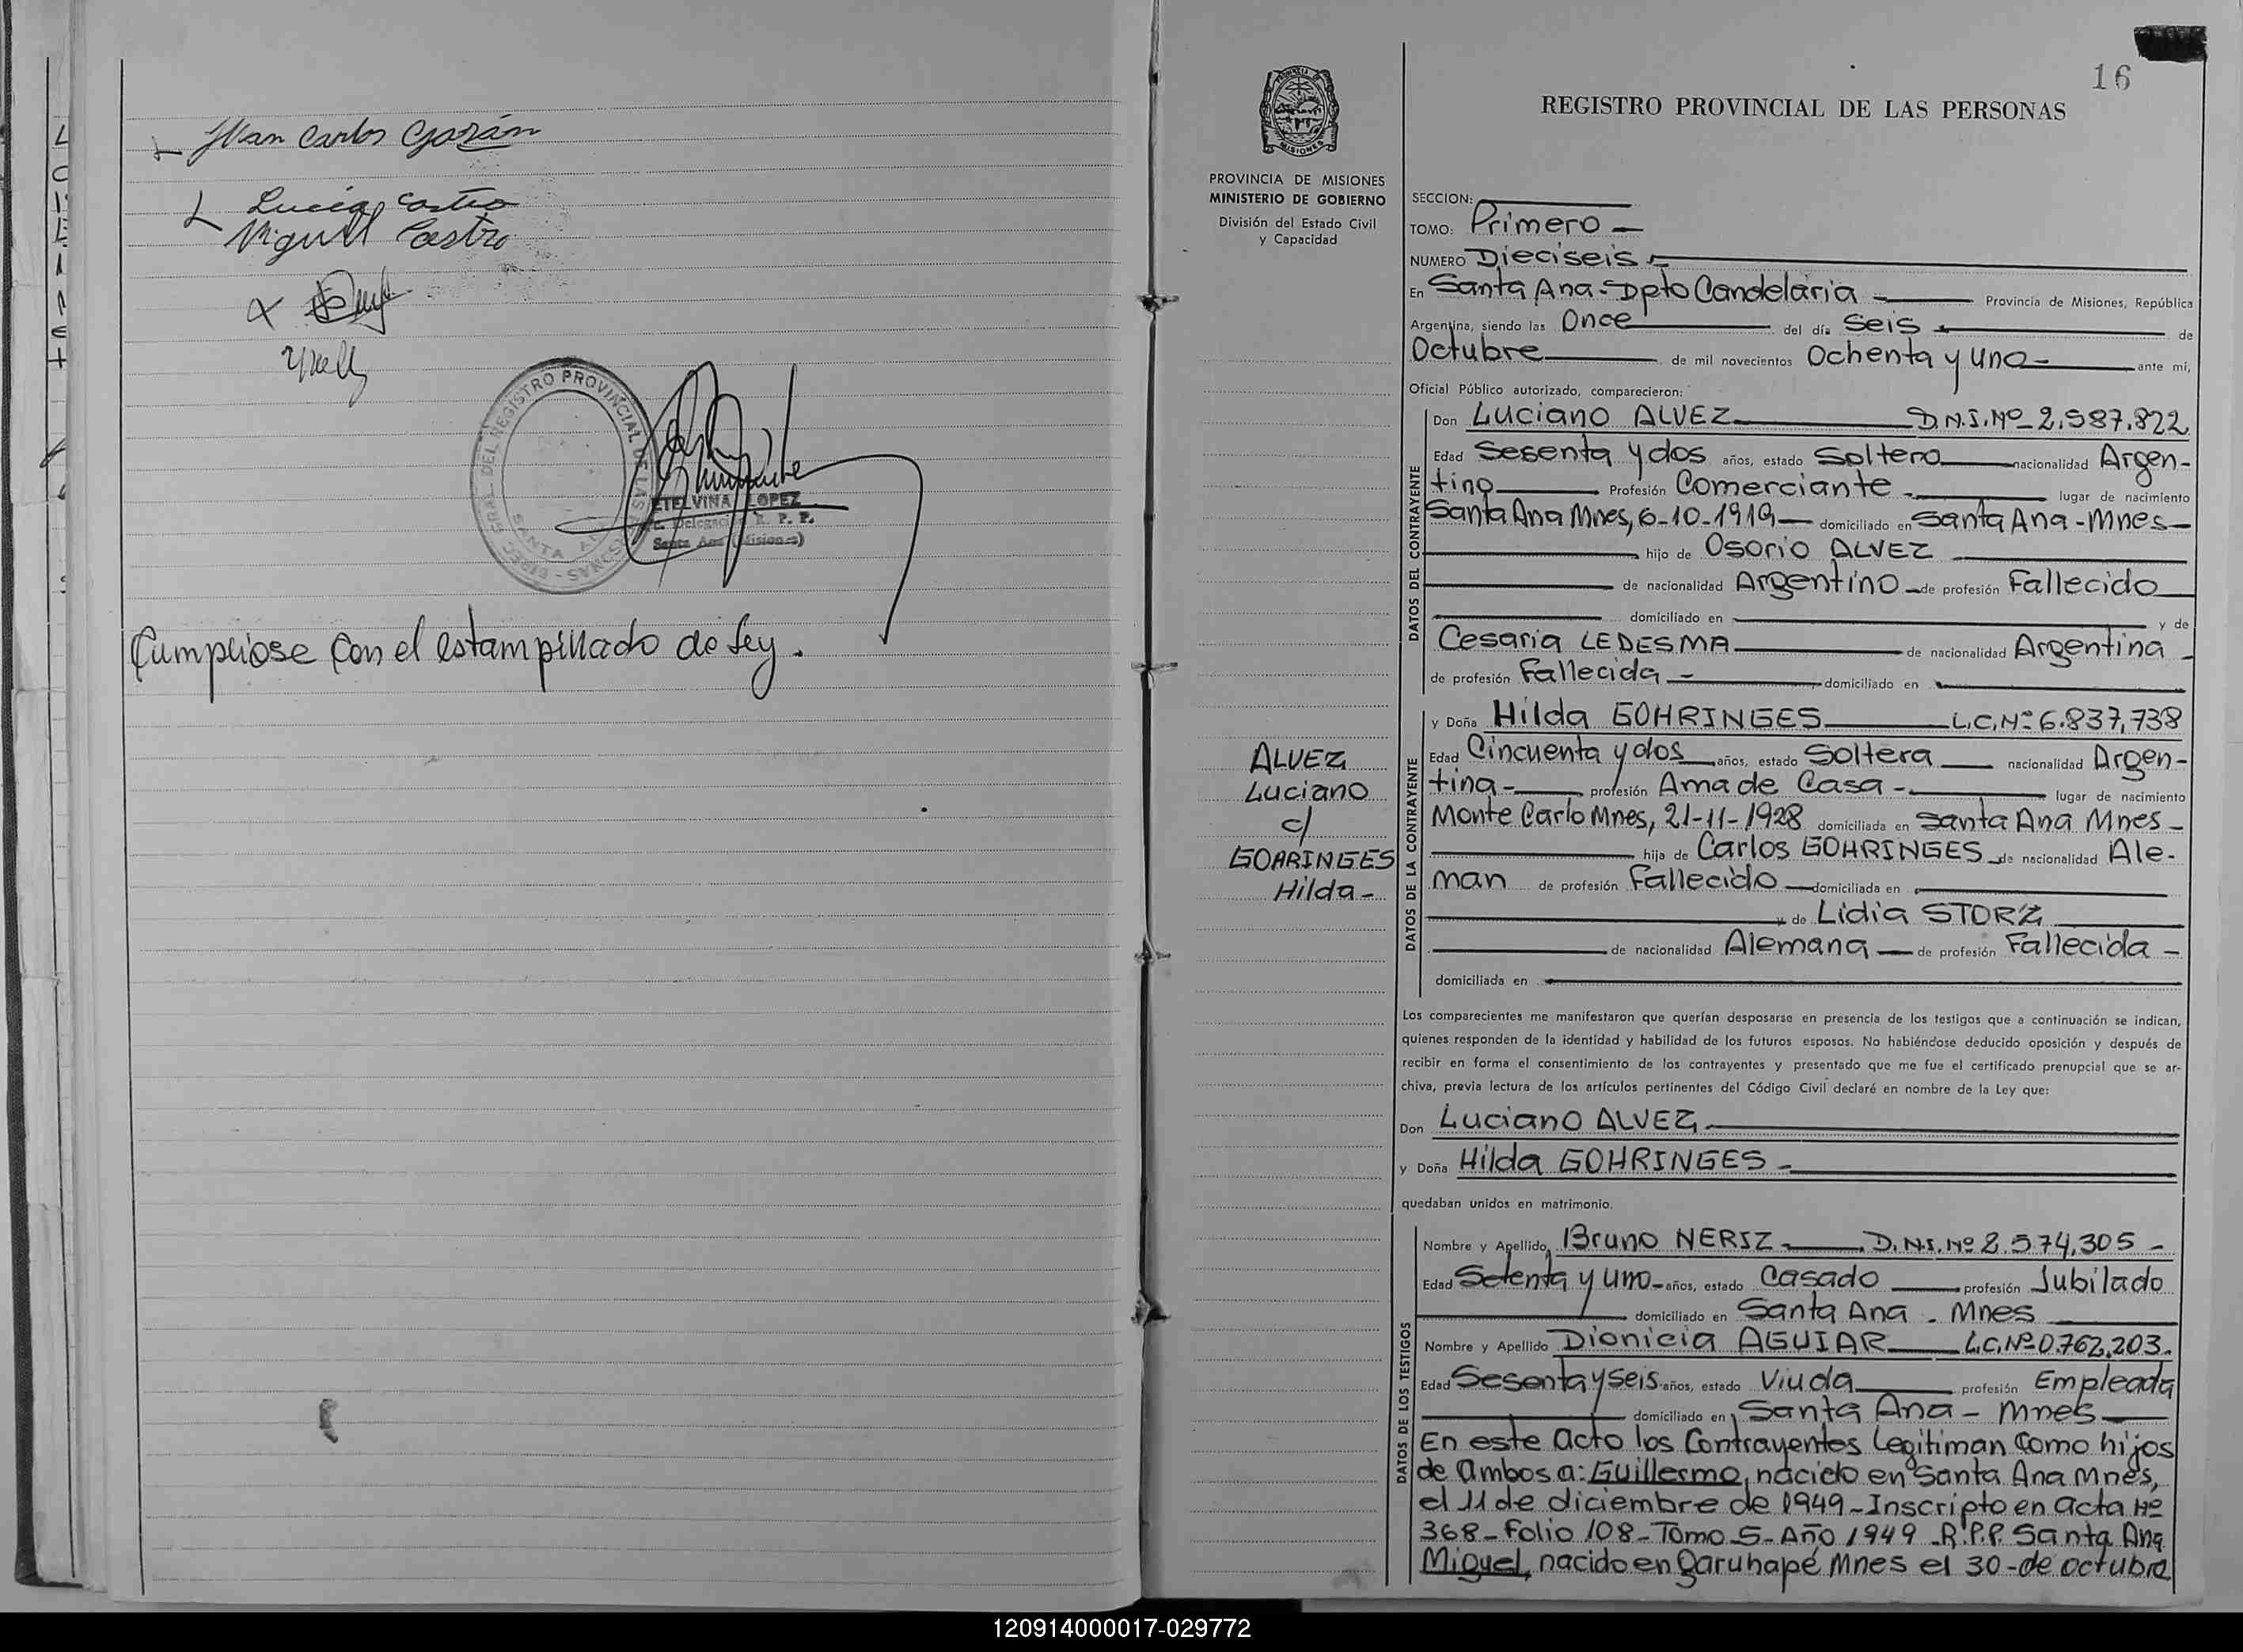 Juan Carlos Gozán
Lucia Castro
Miguel Castro
DIREC. GRAL. DEL REGISTRO PROVINCIAL DE LAS PERSONAS -
SANTA ANA
ETELVINA LOPEZ
Delegación R. P. P.
Santa Ana (Misiones)
Cumpliose con el estampillado de ley.
16
PROVINCIA DE MISIONES
MINISTERIO DE GOBIERNO
División del Estado Civil
y Capacidad
ALVEZ
Luciano
c/
GOHRINGES
Hilda-
REGISTRO PROVINCIAL DE LAS PERSONAS
SECCION:
TOMO: Primero -
NUMERO Dieciseis -
En Santa Ana - Dpto Candelaria - Provincia de Misiones, República
Argentina, siendo las Once del día Seis - de
Octubre de mil novecientos Ochenta y uno - ante mí,
Oficial Público autorizado, comparecieron:
DATOS DEL CONTRAYENTE
Don Luciano ALVEZ D.N.I. Nº 2.587.822
Edad Sesenta y dos años, estado Soltero nacionalidad Argen-
tino Profesión Comerciante - lugar de nacimiento
Santa Ana Mnes, 6-10-1919 - domiciliado en Santa Ana - Mnes -
hijo de Osorio ALVEZ
de nacionalidad Argentino - de profesión Fallecido
domiciliado en y de
Cesaria LEDESMA de nacionalidad Argentina -
de profesión Fallecida - domiciliado en
DATOS DE LA CONTRAYENTE
y Doña Hilda GOHRINGES L.C. Nº 6.837,738
Edad Cincuenta y dos años, estado Soltera nacionalidad Argen-
tina - profesión Ama de Casa - lugar de nacimiento
Monte Carlo Mnes, 21-11-1928 domiciliada en Santa Ana Mnes -
hija de Carlos GOHRINGES de nacionalidad Ale-
man de profesión Fallecido domiciliada en
y de Lidia STORZ
de nacionalidad Alemana de profesión Fallecida -
domiciliada en
Los comparecientes me manifestaron que querían desposarse en presencia de los testigos que a continuación se indican,
quienes responden de la identidad y habilidad de los futuros esposos. No habiéndose deducido oposición y después de
recibir en forma el consentimiento de los contrayentes y presentado que me fue el certificado prenupcial que se ar-
chiva, previa lectura de los artículos pertinentes del Código Civil declaré en nombre de la Ley que:
Don Luciano ALVEZ
y Doña Hilda GOHRINGES -
quedaban unidos en matrimonio.
DATOS DE LOS TESTIGOS
Nombre y Apellido Bruno NERIZ D.N.I. Nº 2.574,305 -
Edad Setenta y uno - años, estado Casado profesión Jubilado
domiciliado en Santa Ana - Mnes
Nombre y Apellido Dionicia AGUIAR L.C. Nº 0.762,203.
Edad Sesenta y Seis años, estado Viuda profesión Empleada
domiciliado en Santa Ana - Mnes
En este acto los Contrayentes Legitiman como hijos
de ambos a: Guillermo, nacido en Santa Ana Mnes,
el 11 de diciembre de 1949 - Inscripto en acta Nº
368 - Folio 108 - Tomo 5 - Año 1949 - R.P.P. Santa Ana
Miguel, nacido en Garuhapé Mnes el 30 - de octubre
120914000017-029772